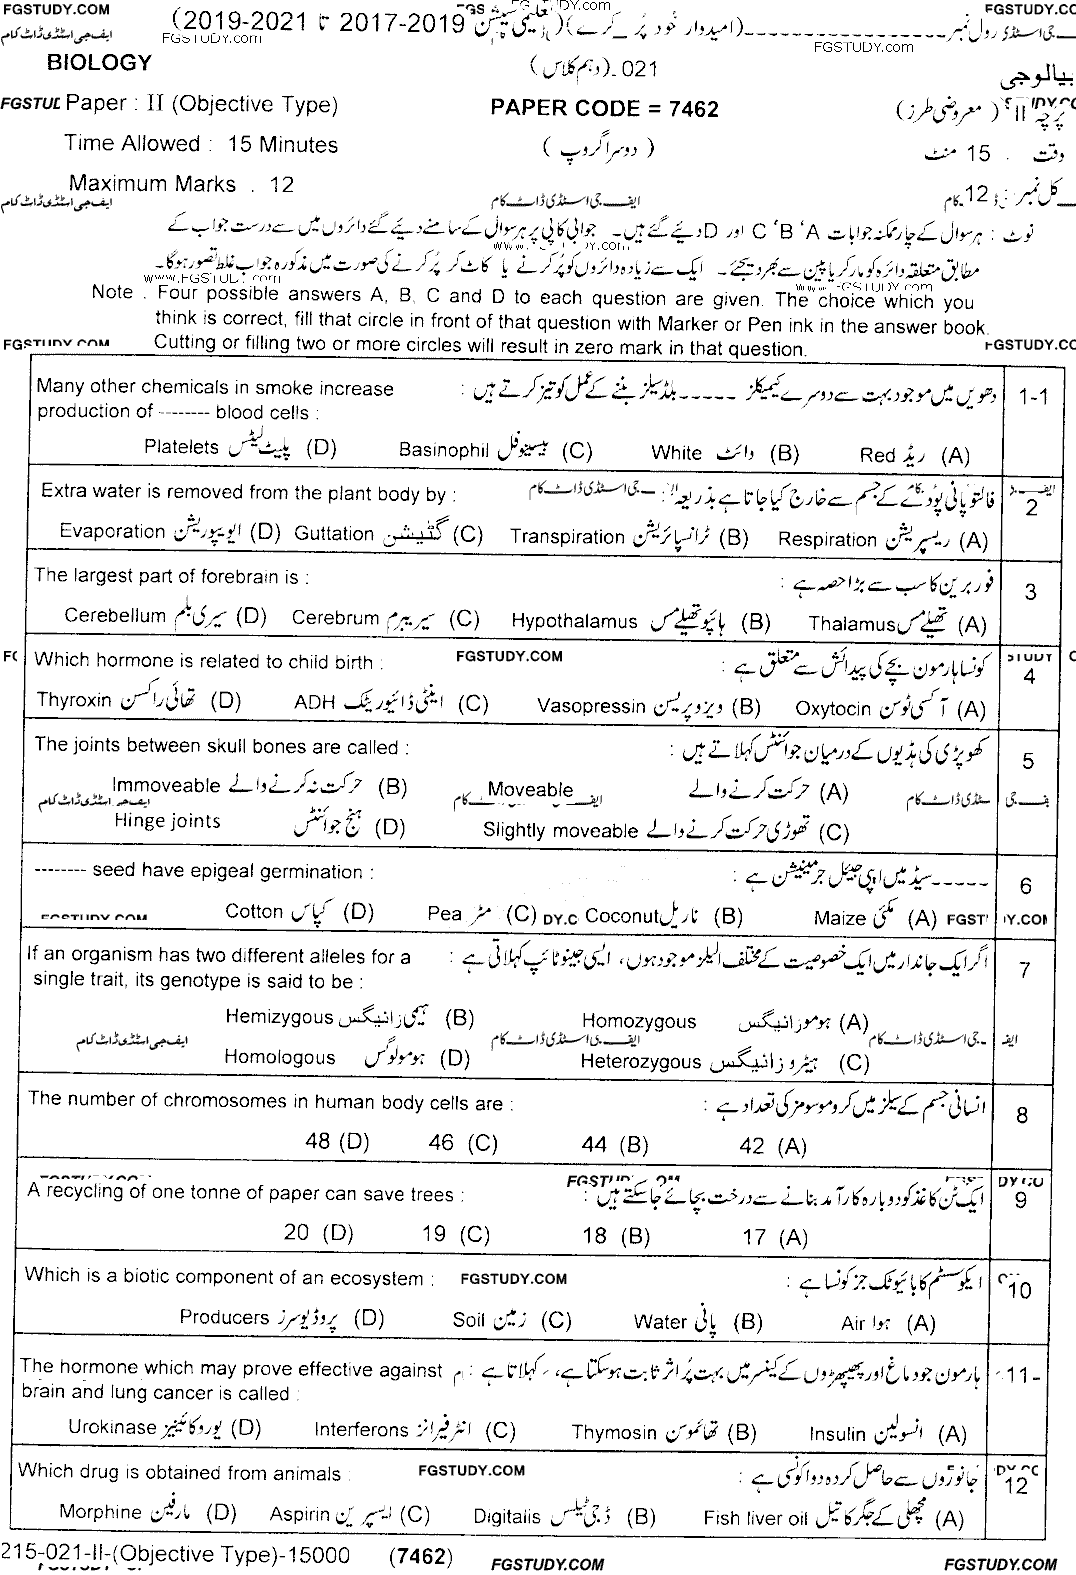 FGSTUDY.COM
(امیدوار خود پُر کرے) (تعلیمی سیشن 2017-2019 تا 2019-2021)
FGSTUDY.CO
ایف جی اسٹڈی ڈاٹ کام
FGSTUDY.com
FGSTUDY.com
رول نمبر
BIOLOGY
021۔(دہم کلاس)
بیالوجی
Paper : II (Objective Type)
PAPER CODE = 7462
پرچہ II ( معروضی طرز )
Time Allowed : 15 Minutes
( دوسرا گروپ )
وقت : 15 منٹ
Maximum Marks : 12
کل نمبر : 12
ایف جی اسٹڈی ڈاٹ کام
نوٹ : ہر سوال کے چار ممکنہ جوابات A، B، C اور D دیئے گئے ہیں۔ جوابی کاپی پر ہر سوال کے سامنے دیئے گئے دائروں میں سے درست جواب کے
مطابق متعلقہ دائرہ کو مارکر یا پین سے بھر دیجئے۔ ایک سے زیادہ دائروں کو پُر کرنے یا کاٹ کر پُر کرنے کی صورت میں مذکورہ جواب غلط تصور ہوگا۔
www.FGSTUDY.com
Note : Four possible answers A, B, C and D to each question are given. The choice which you
think is correct, fill that circle in front of that question with Marker or Pen ink in the answer book.
Cutting or filling two or more circles will result in zero mark in that question.
FGSTUDY.COM
FGSTUDY.CO
Many other chemicals in smoke increase دھویں میں موجود بہت سے دوسرے کیمیکلز ----- بلڈ سیلز بننے کے عمل کو تیز کرتے ہیں : 1-1
production of -------- blood cells :
Platelets پلیٹ لیٹس (D) Basinophil بیسینوفل (C) White وائٹ (B) Red ریڈ (A)
Extra water is removed from the plant body by : فالتو پانی پودے کے جسم سے خارج کیا جاتا ہے بذریعہ : 2
Evaporation ایوپوریشن (D) Guttation گٹیشن (C) Transpiration ٹرانسپائریشن (B) Respiration ریسپریشن (A)
The largest part of forebrain is : فور برین کا سب سے بڑا حصہ ہے : 3
Cerebellum سیری بلم (D) Cerebrum سیریبرم (C) Hypothalamus ہائپوتھیلےمس (B) Thalamus تھیلےمس (A)
Which hormone is related to child birth : FGSTUDY.COM کونسا ہارمون بچے کی پیدائش سے متعلق ہے : 4
Thyroxin تھائی راکسن (D) ADH اینٹی ڈائیوریٹک (C) Vasopressin ویزوپریسن (B) Oxytocin آکسی ٹوسن (A)
The joints between skull bones are called : کھوپڑی کی ہڈیوں کے درمیان جوائنٹس کہلاتے ہیں : 5
Immoveable حرکت نہ کرنے والے (B) Moveable حرکت کرنے والے (A)
Hinge joints ہنج جوائنٹس (D) Slightly moveable تھوڑی حرکت کرنے والے (C)
-------- seed have epigeal germination : ----- سیڈ میں ایپی جیئل جرمینیشن ہے : 6
Cotton کپاس (D) Pea مٹر (C) Coconut ناریل (B) Maize مکئی (A)
If an organism has two different alleles for a اگر ایک جاندار میں ایک خصوصیت کے مختلف الیلز موجود ہوں، ایسی جینوٹائپ کہلاتی ہے : 7
single trait, its genotype is said to be :
Hemizygous ہیمی زائیگس (B) Homozygous ہوموزائیگس (A)
Homologous ہومولوگس (D) Heterozygous ہیٹروزائیگس (C)
The number of chromosomes in human body cells are : انسانی جسم کے سیلز میں کروموسومز کی تعداد ہے : 8
48 (D) 46 (C) 44 (B) 42 (A)
A recycling of one tonne of paper can save trees : ایک ٹن کاغذ کو دوبارہ کارآمد بنانے سے درخت بچائے جاسکتے ہیں : 9
20 (D) 19 (C) 18 (B) 17 (A)
Which is a biotic component of an ecosystem : FGSTUDY.COM ایکوسسٹم کا بائیوٹک جز کونسا ہے : 10
Producers پروڈیوسرز (D) Soil زمین (C) Water پانی (B) Air ہوا (A)
The hormone which may prove effective against ہارمون جو دماغ اور پھیپھڑوں کے کینسر میں بہت پُر اثر ثابت ہوسکتا ہے، کہلاتا ہے : 11-
brain and lung cancer is called :
Urokinase یوروکائینیز (D) Interferons انٹرفیرانز (C) Thymosin تھائموسن (B) Insulin انسولین (A)
Which drug is obtained from animals : FGSTUDY.COM جانوروں سے حاصل کردہ دوا کونسی ہے : 12
Morphine مارفین (D) Aspirin ایسپرین (C) Digitalis ڈجی ٹیلس (B) Fish liver oil مچھلی کے جگر کا تیل (A)
215-021-II-(Objective Type)-15000 (7462)
FGSTUDY.COM
FGSTUDY.COM